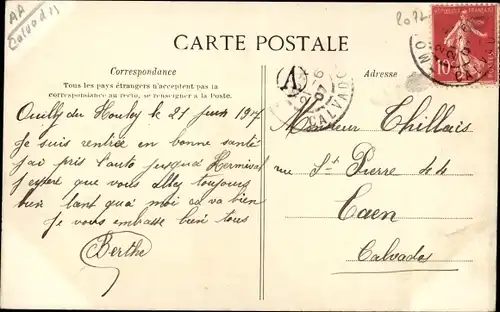 AA
Calvados
CARTE POSTALE
Correspondance
Tous les pays étrangers n'acceptent pas la
correspondance au recto, se renseigner à la Poste.
Adresse
Ouilly du Houley le 21 Juin 1907
Je suis rentrée en bonne santé
j'ai pris l'auto jusqua Hermival
j'espert que vous allez toujours
bien tant qua moi sa va bien
je vous embrasse bien tous
Berthe
A
07
CALVADOS
REPUBLIQUE FRANCAISE
10
Monsieur Thillais
rue St Pierre
Caen
Calvados